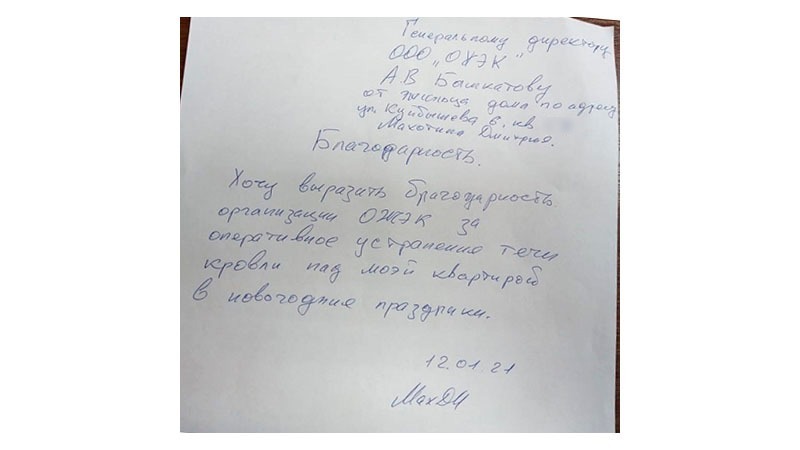 Генеральному директору
ООО „ОЖЭК"
А В Башкатову
от жильца дома по адресу
ул. Куйбышева 6. кв
Махотина Дмитрия.
Благодарность.
Хочу выразить благодарность
организации ОЖЭК за
оперативное устранение течи
кровли над моэй квартирой
в новогодние праздники.
12.01.21
МахДИ